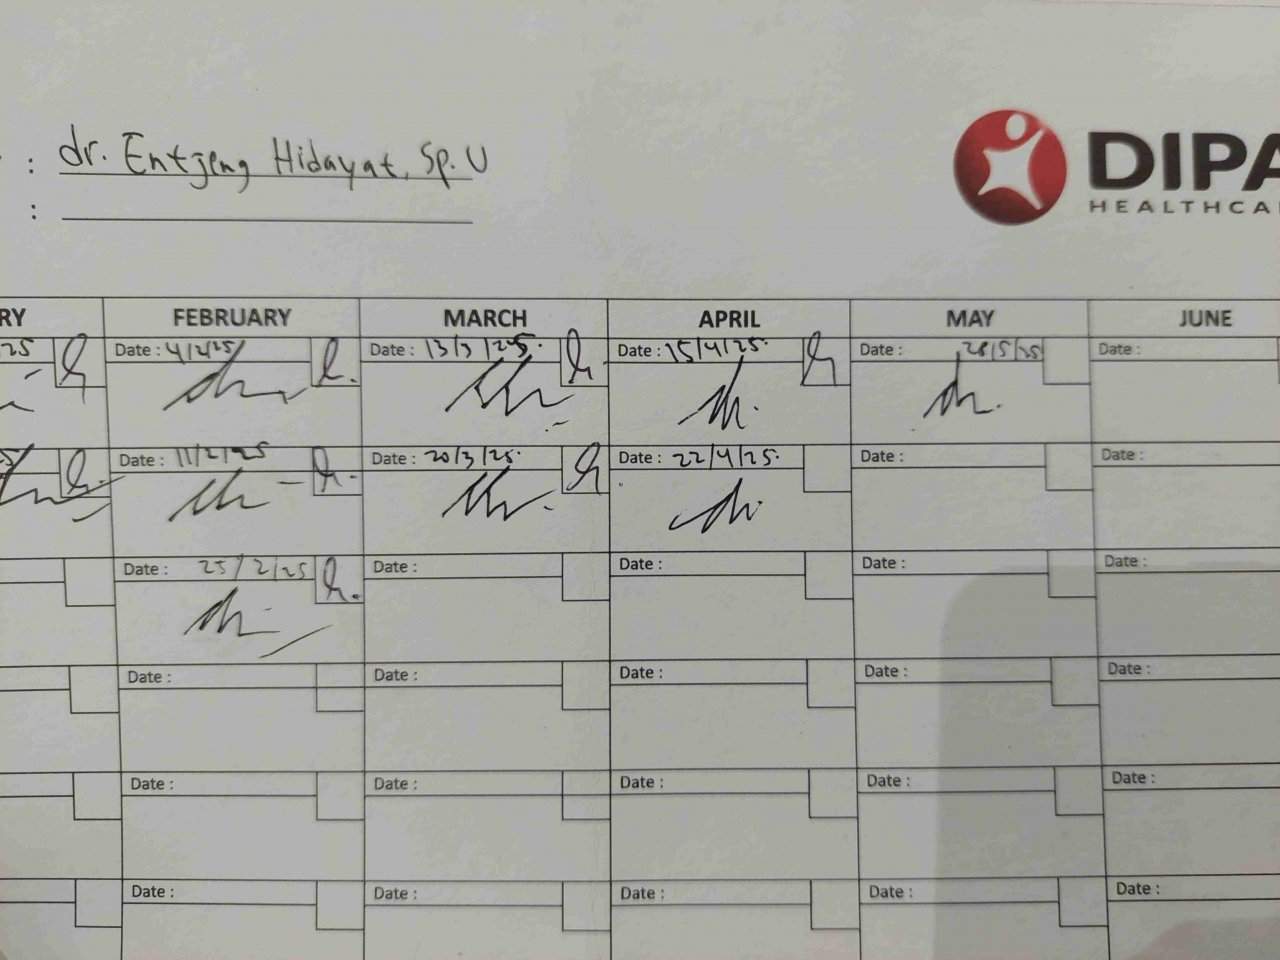 : dr. Entjeng Hidayat, Sp. U
:
DIPA
HEALTHCA
RY FEBRUARY MARCH APRIL MAY JUNE
25 Date : 4/2/25 Date : 13/3/25. Date : 15/4/25. Date : 28/5/25 Date :
Date : 11/2/25 Date : 20/3/25. Date : 22/4/25. Date : Date :
Date : 25/2/25 Date : Date : Date : Date :
Date : Date : Date : Date : Date :
Date : Date : Date : Date : Date :
Date : Date : Date : Date : Date :